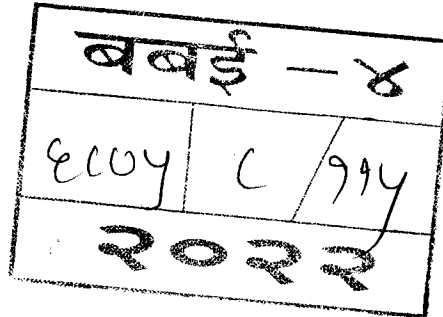 बबई - ४
६८७५ ८ / ११५
२०२२